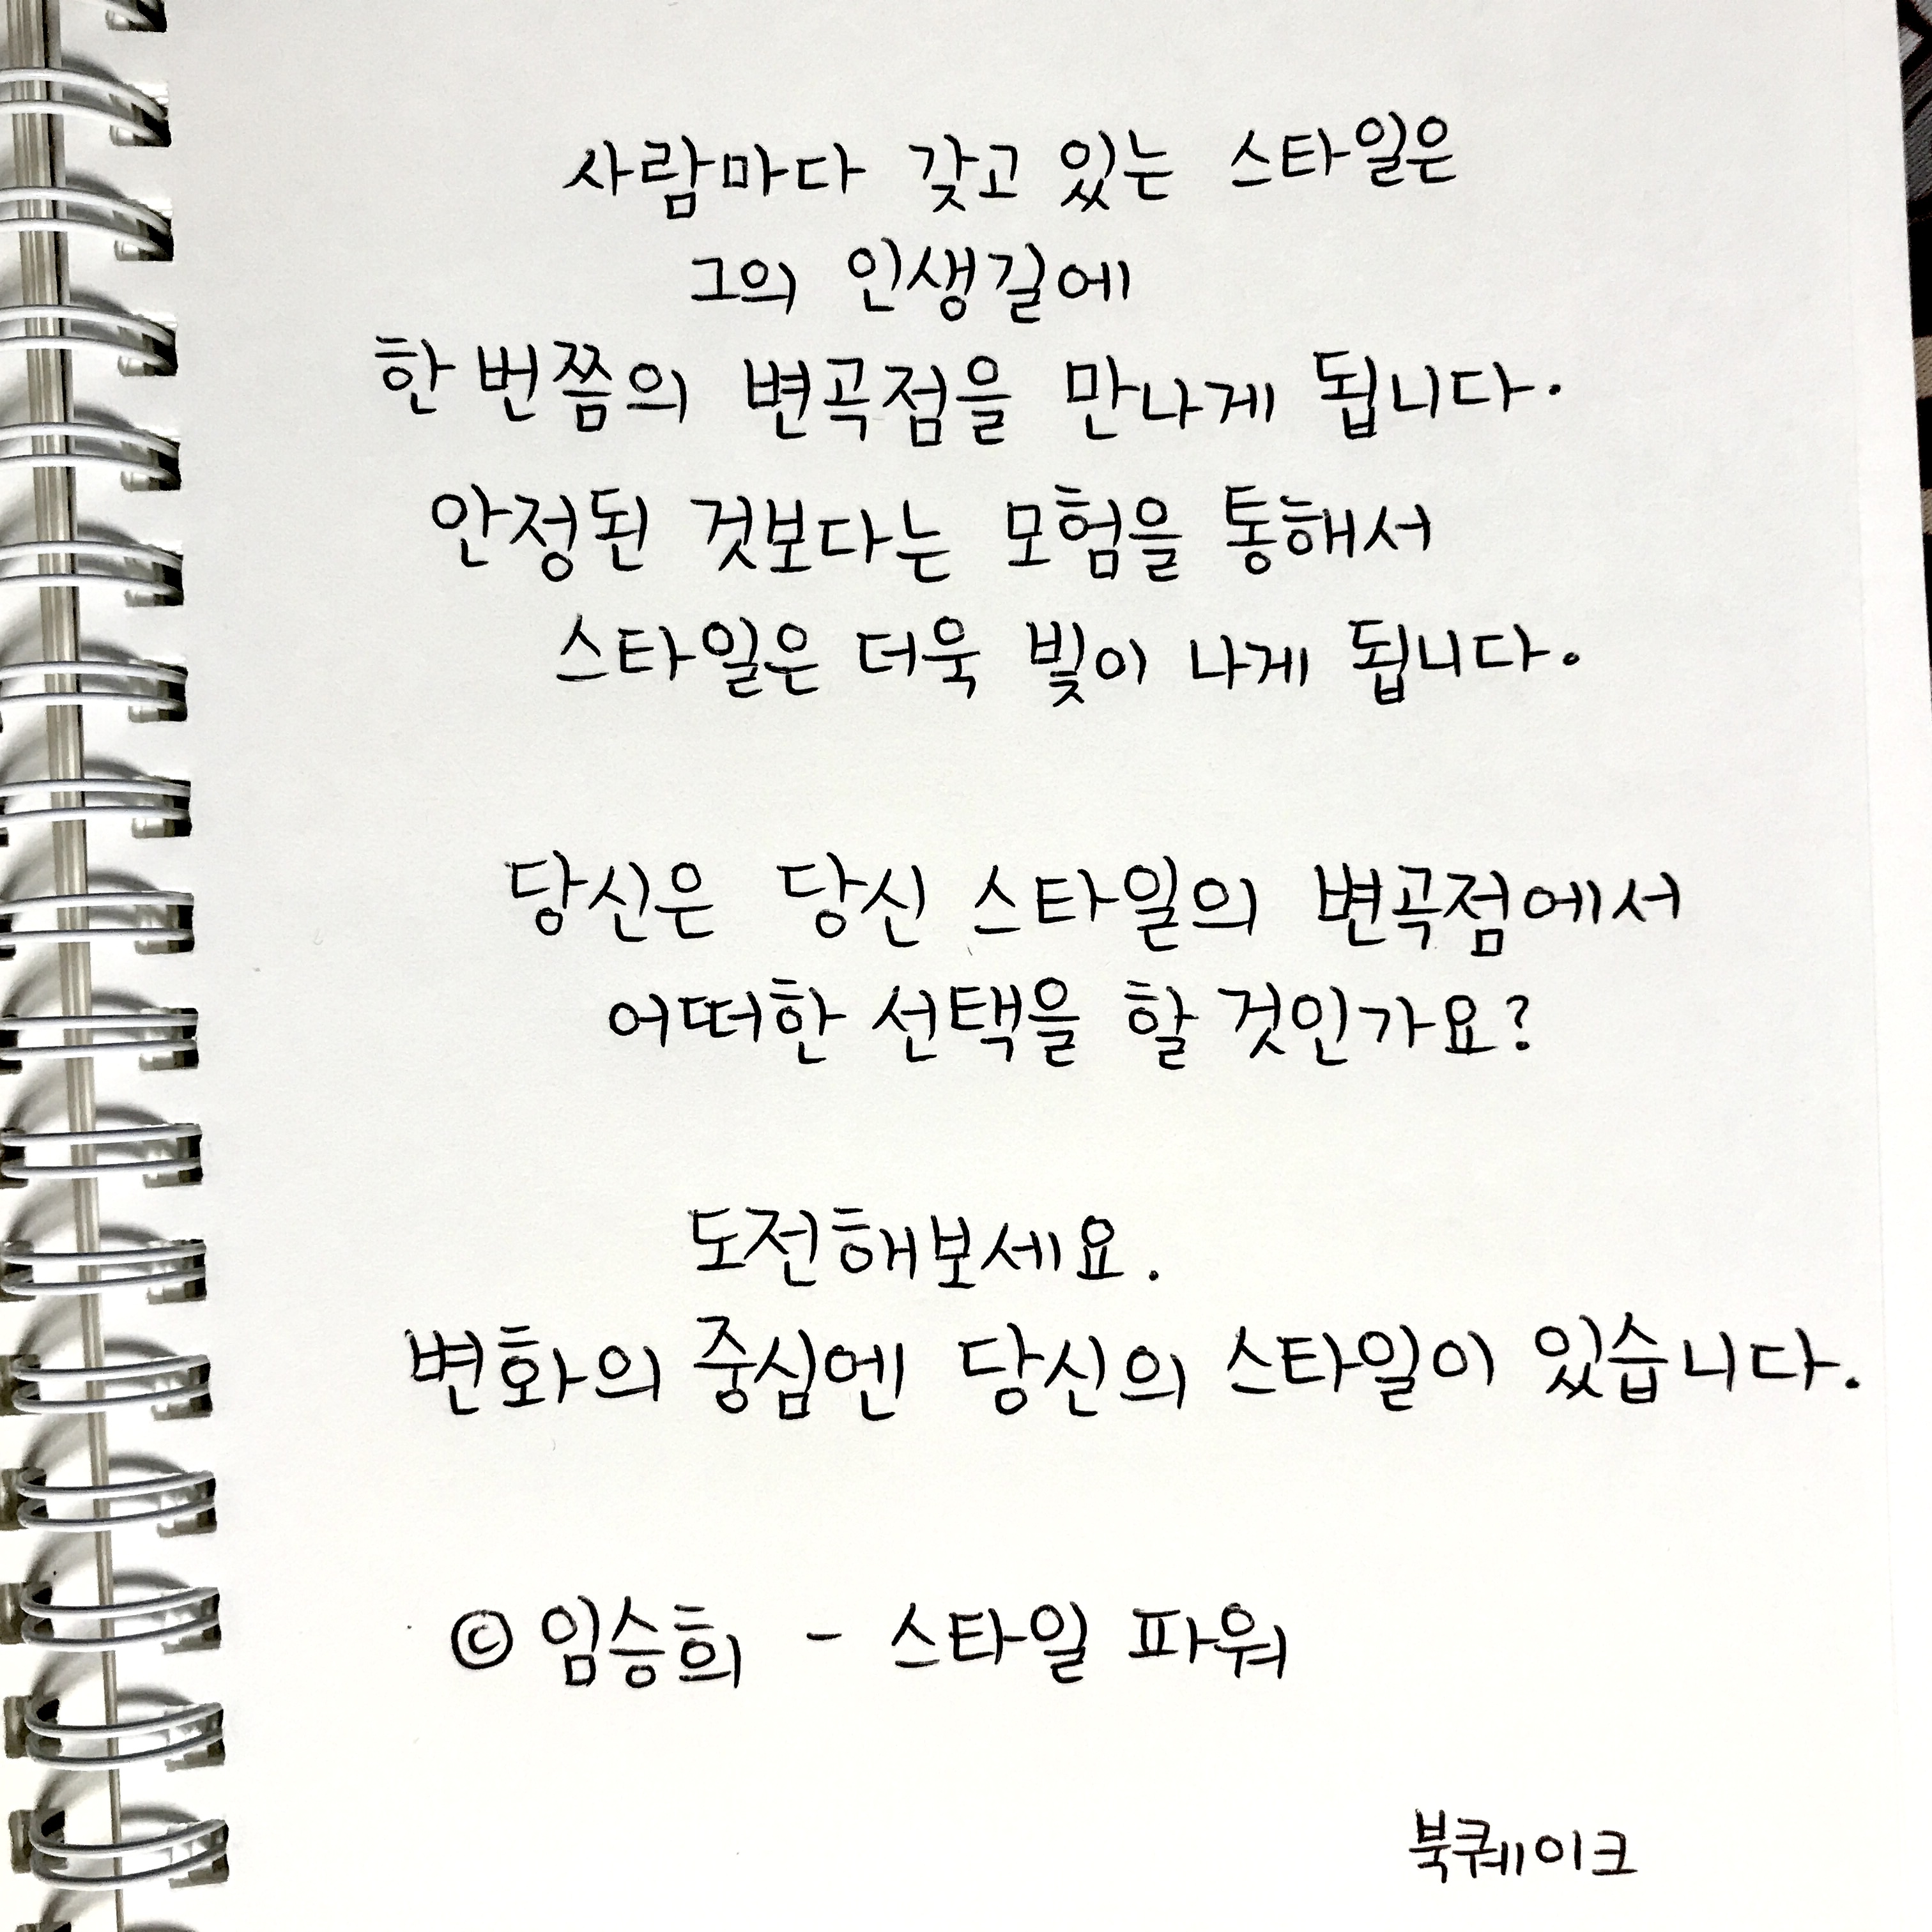 사람마다 갖고 있는 스타일은
그의 인생길에
한 번쯤의 변곡점을 만나게 됩니다.
안정된 것보다는 모험을 통해서
스타일은 더욱 빛이 나게 됩니다.
당신은 당신 스타일의 변곡점에서
어떠한 선택을 할 것인가요?
도전해보세요.
변화의 중심엔 당신의 스타일이 있습니다.
© 임승희 - 스타일 파워
북퀘이크